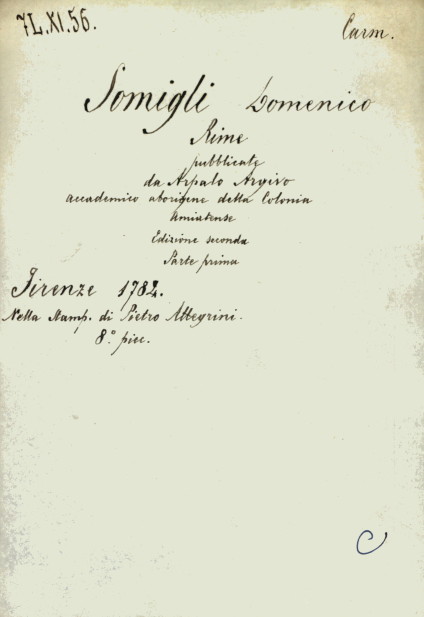 7L.XI.56.
Carm.
Somigli Domenico
Rime
pubblicate
da Arpalo Argivo
accademico aborigene della Colonia
Amiatense
Edizione seconda
Parte prima
Firenze 1782.
Nella Stamp. di Pietro Allegrini.
8.° picc.